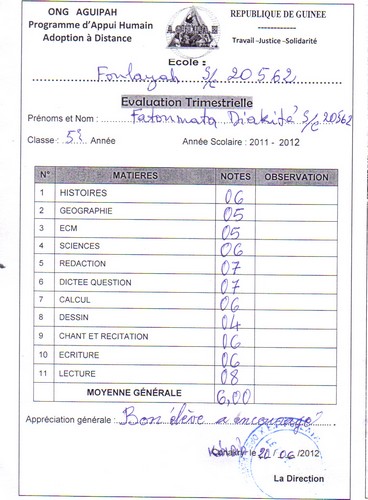 ONG AGUIPAH
Programme d'Appui Humain
Adoption à Distance
REPUBLIQUE DE GUINEE
Travail -Justice -Solidarité
Ecole :
Foulayah S/C 20562
Evaluation Trimestrielle
Prénoms et Nom : Fatoumata Diakité S/C 20562
Classe : 5è Année Année Scolaire : 2011 - 2012
N° MATIERES NOTES OBSERVATION
1 HISTOIRES 06
2 GEOGRAPHIE 05
3 ECM 05
4 SCIENCES 06
5 REDACTION 07
6 DICTEE QUESTION 07
7 CALCUL 06
8 DESSIN 04
9 CHANT ET RECITATION 06
10 ECRITURE 06
11 LECTURE 08
MOYENNE GÉNÉRALE 6,00
Appréciation générale : Bon élève a encouragé
le 22/06/2012
La Direction